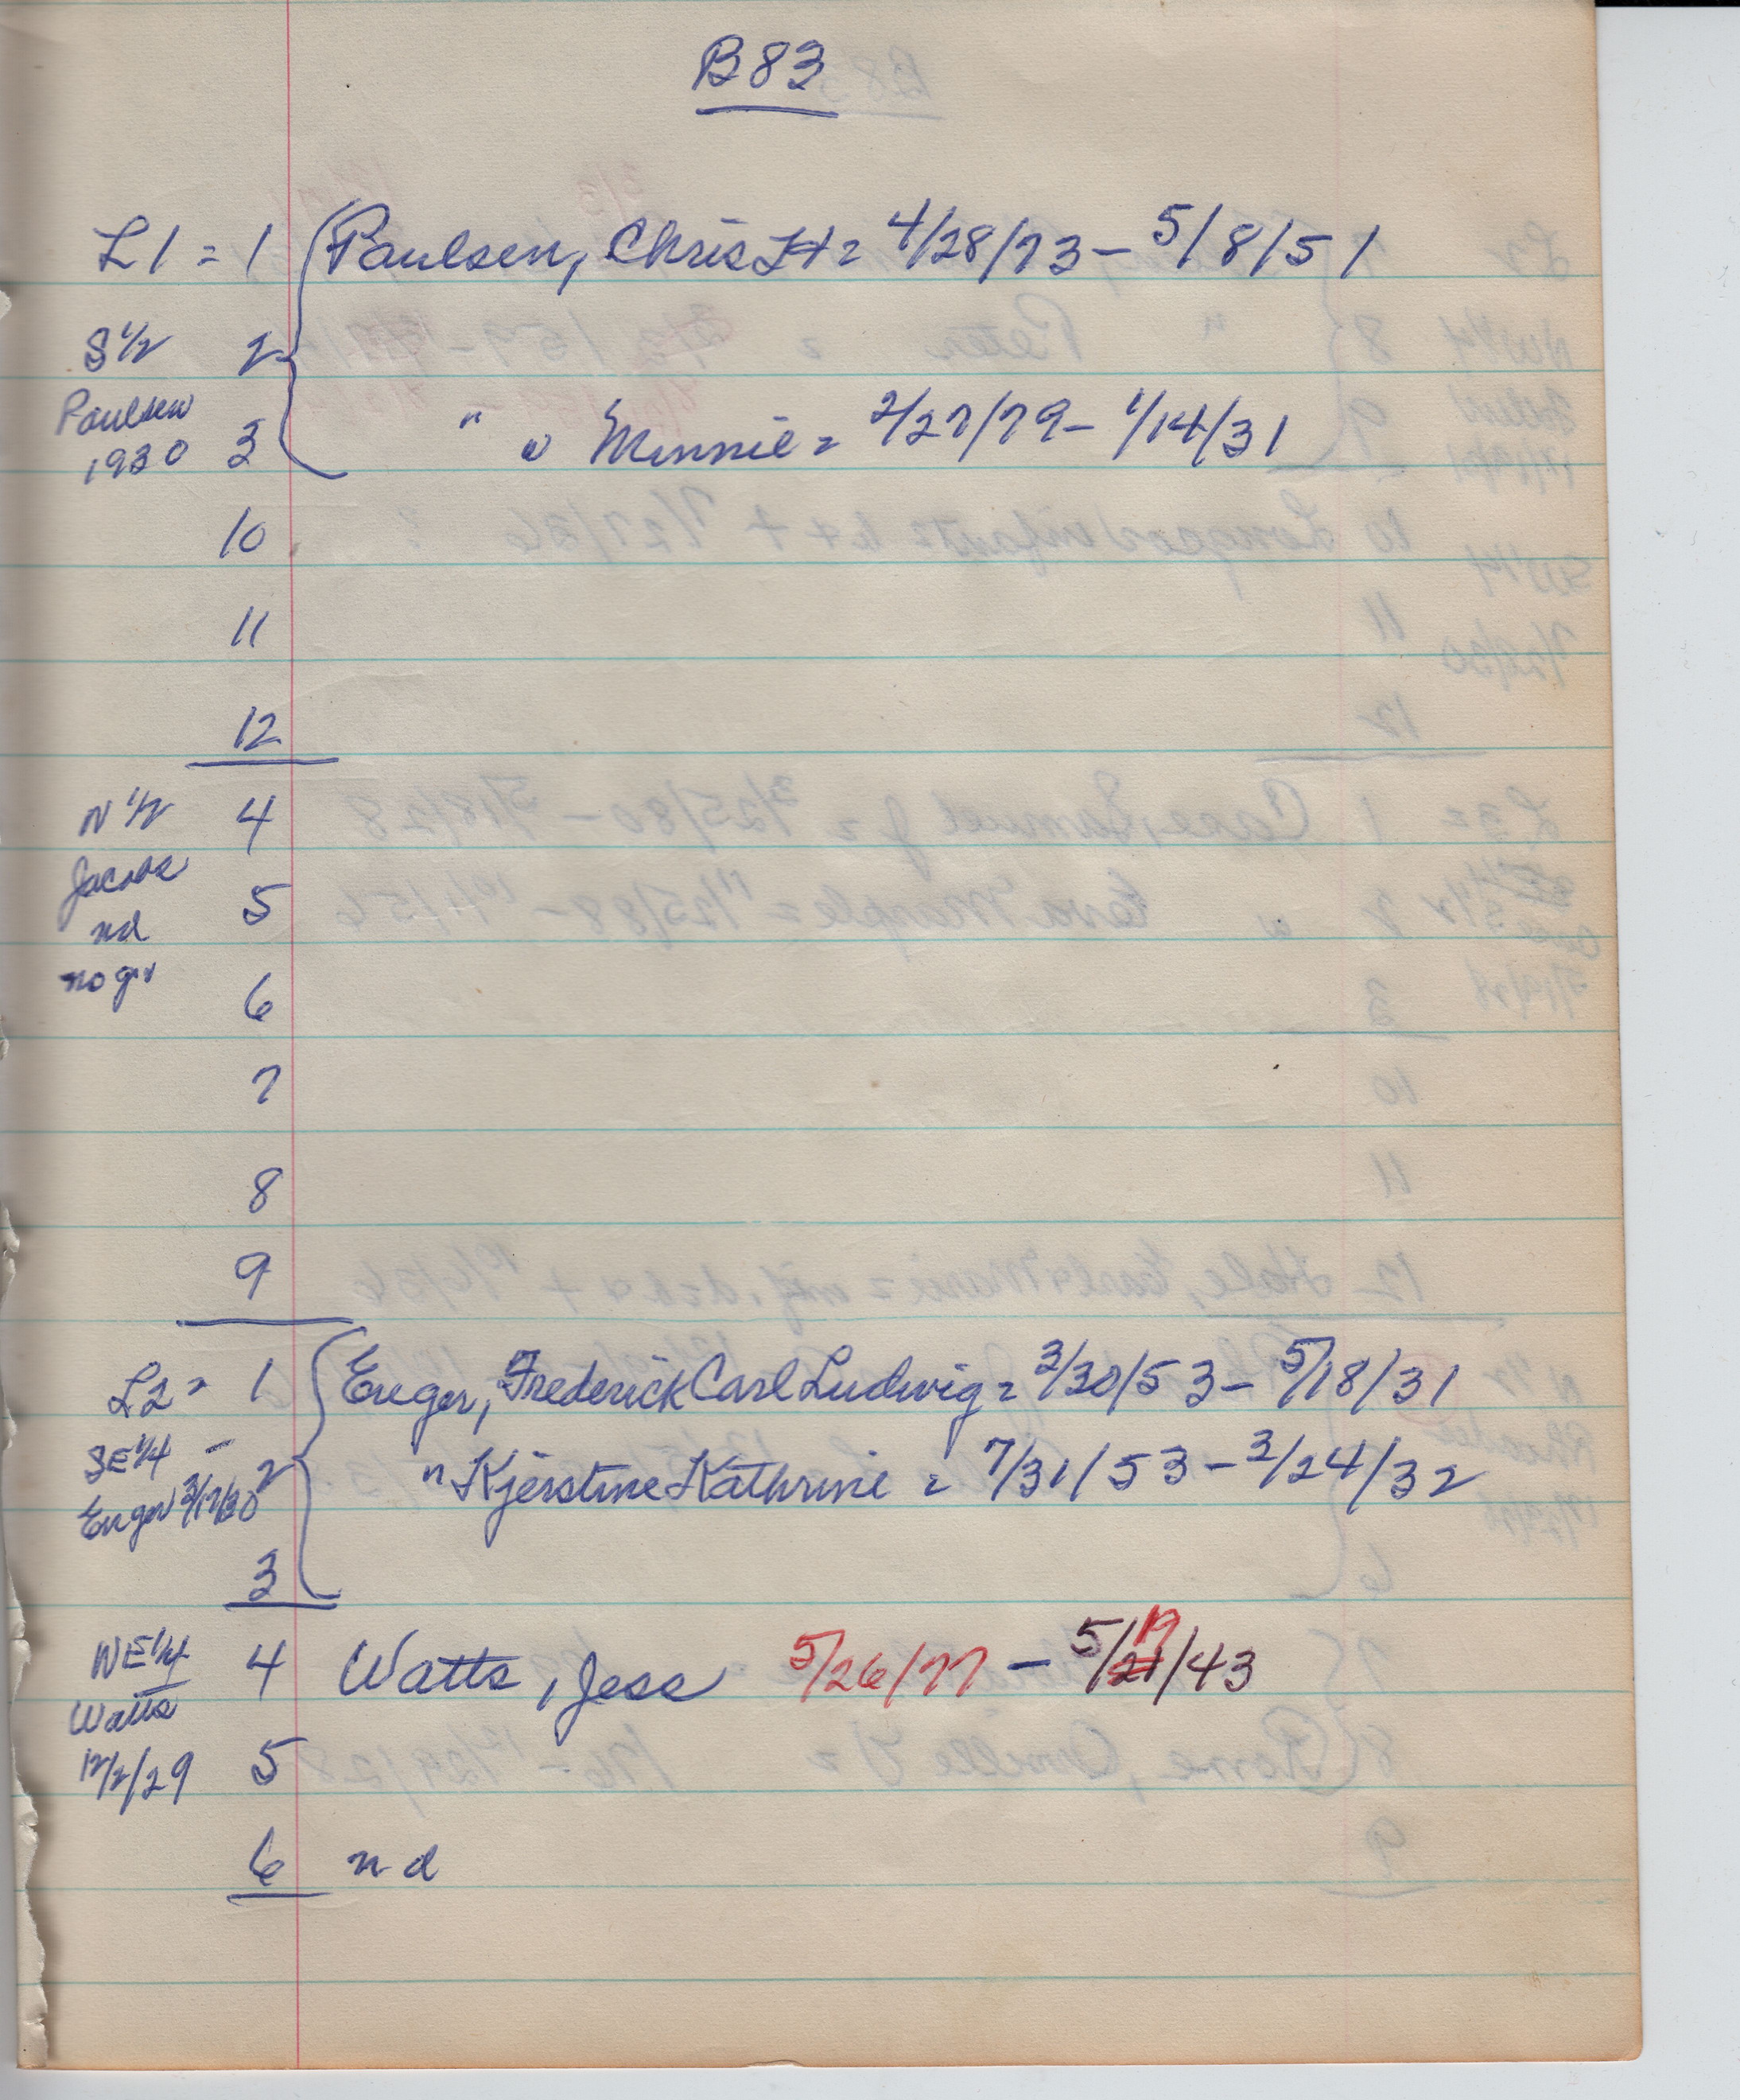 B83
L1 = 1 Paulsen, Chris H = 4/28/73 – 5/8/51
S 1/2 2
Paulsen
1930 3 " w Minnie = 2/27/79 – 1/14/31
10
11
12
N 1/2 4
Jacobs 5
nd
no gr 6
7
8
9
L2 = 1 Euger, Frederick Carl Ludwig = 3/30/53 – 5/18/31
SE 1/4 – 2 " Kjerstine Kathrine = 7/31/53 – 3/24/32
Euger 3/17/30
3
NE 1/4 4 Watts, Jess 5/26/77 – 5/19/43
Watts
12/2/29 5
6 nd